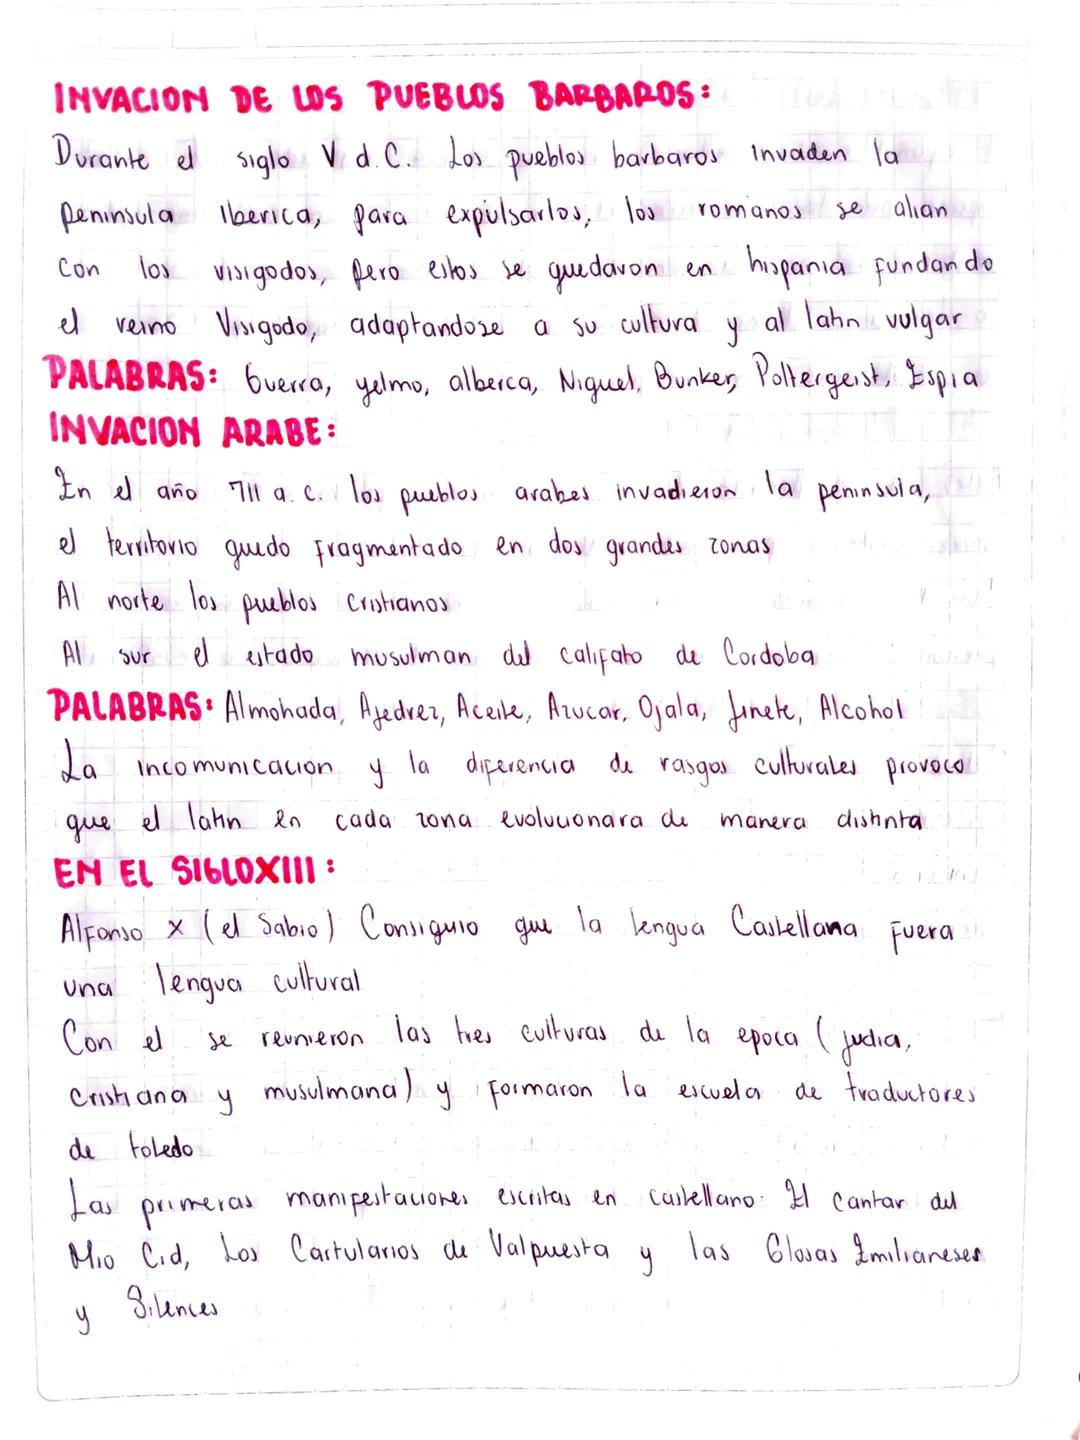 INVACION DE LOS PUEBLOS BARBAROS:
Durante el siglo V d.C. Los pueblos barbaros invaden la
peninsula Iberica, para expulsarlos, los romanos se alian
con los visigodos, pero estos se quedaron en hispania fundando
el reino Visigodo, adaptandose a su cultura y al latin vulgar
PALABRAS: Guerra, yelmo, alberca, Niquel, Bunker, Poltergeist, Espia
INVACION ARABE:
En el año 711 a.c. los pueblos arabes invadieron la peninsula,
el territorio quedo fragmentado en dos grandes zonas
Al norte los pueblos cristianos
Al sur el estado musulman del califato de Cordoba
PALABRAS: Almohada, Ajedrez, Aceite, Azucar, Ojala, jinete, Alcohol
La incomunicacion y la diferencia de rasgos culturales provoco
que el latin en cada zona evolucionara de manera distinta
EN EL SIGLOXIII:
Alfonso X (el Sabio) Consiguio que la lengua Castellana fuera
una lengua cultural
Con el se reunieron las tres culturas de la epoca (judia,
cristiana y musulmana) y formaron la escuela de traductores
de toledo
Las primeras manifestaciones escritas en castellano: El cantar del
Mio Cid, Los Cartularios de Valpuesta y las Glosas Emilianeses
y Silences